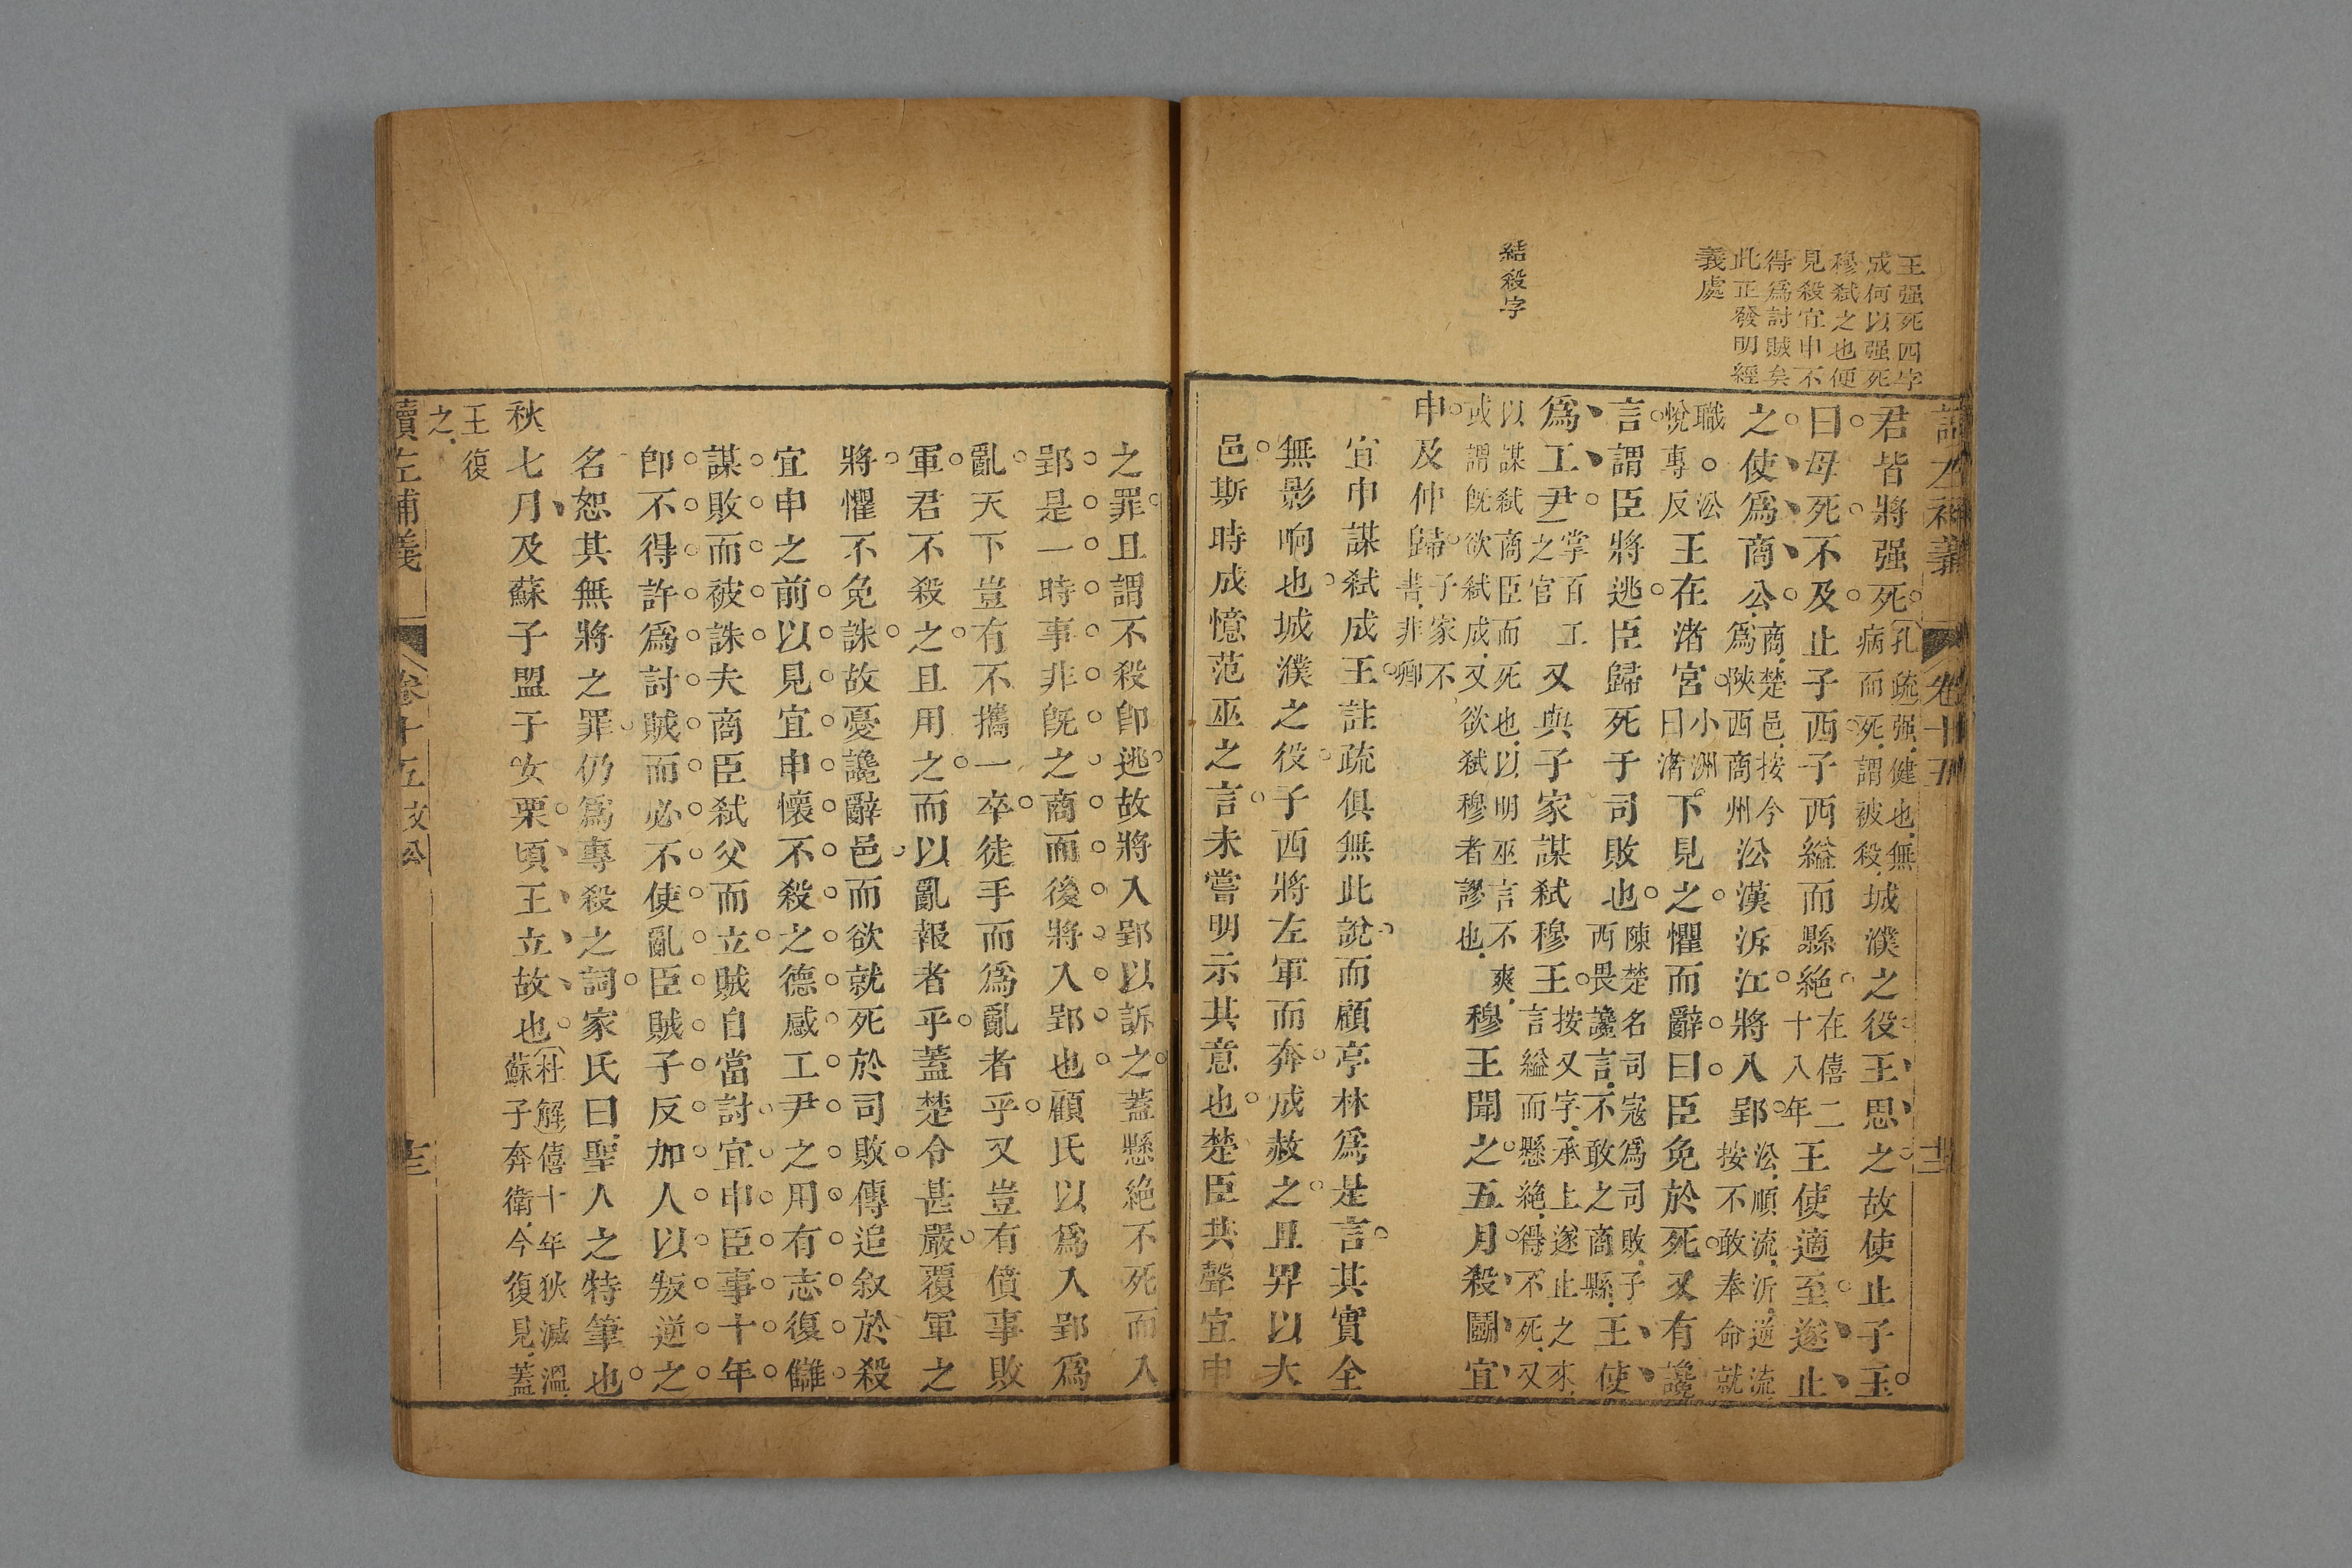 王强死四字
成何以强死
穆弑之也便
見殺宜申不
得爲討賊矣
此正發明經
義處
結殺字
君皆將强死孔疏强健也無病而死謂被殺城濮之役王思之故使止子玉
曰毋死不及止子西子西縊而縣絶在僖二十八年王使適至遂止
之使爲商公商楚邑按今爲陝西商州沿漢泝江將入郢沿順流泝逆流按不敢奉命就
職沿悅專反王在渚宮小洲曰渚下見之懼而辭曰臣免於死又有讒
言謂臣將逃臣歸死于司敗也陳楚名司寇爲司敗子西畏讒言不敢之商縣王使
爲工尹掌百工之官又與子家謀弑穆王按又字承上遂止之來言縊而懸絶得不死又
以謀弑商臣而死也以明巫言不爽或謂旣欲弑成又欲弑穆者謬也穆王聞之五月殺鬬宜
申及仲歸子家不書非卿
宜申謀弑成王註疏俱無此說而顧亭林爲是言其實全
無影响也城濮之役子西將左軍而奔成赦之且畀以大
邑斯時成憶范巫之言未嘗明示其意也楚臣共聲宜申
之罪且謂不殺卽逃故將入郢以訴之蓋懸絶不死而入
郢是一時事非旣之商而後將入郢也顧氏以爲入郢爲
亂天下豈有不攜一卒徒手而爲亂者乎又豈有僨事敗
軍君不殺之且用之而以亂報者乎蓋楚令甚嚴覆軍之
將懼不免誅故憂讒辭邑而欲就死於司敗傳追叙於殺
宜申之前以見宜申懷不殺之德感工尹之用有志復讎
謀敗而被誅夫商臣弑父而立賊自當討宜申臣事十年
卽不得許爲討賊而必不使亂臣賊子反加人以叛逆之
名恕其無將之罪仍爲專殺之詞家氏曰聖人之特筆也
秋七月及蘇子盟于女栗頃王立故也杜解僖十年狄滅溫蘇子奔衛今復見蓋
王復之
讀左補義 卷十五 文公